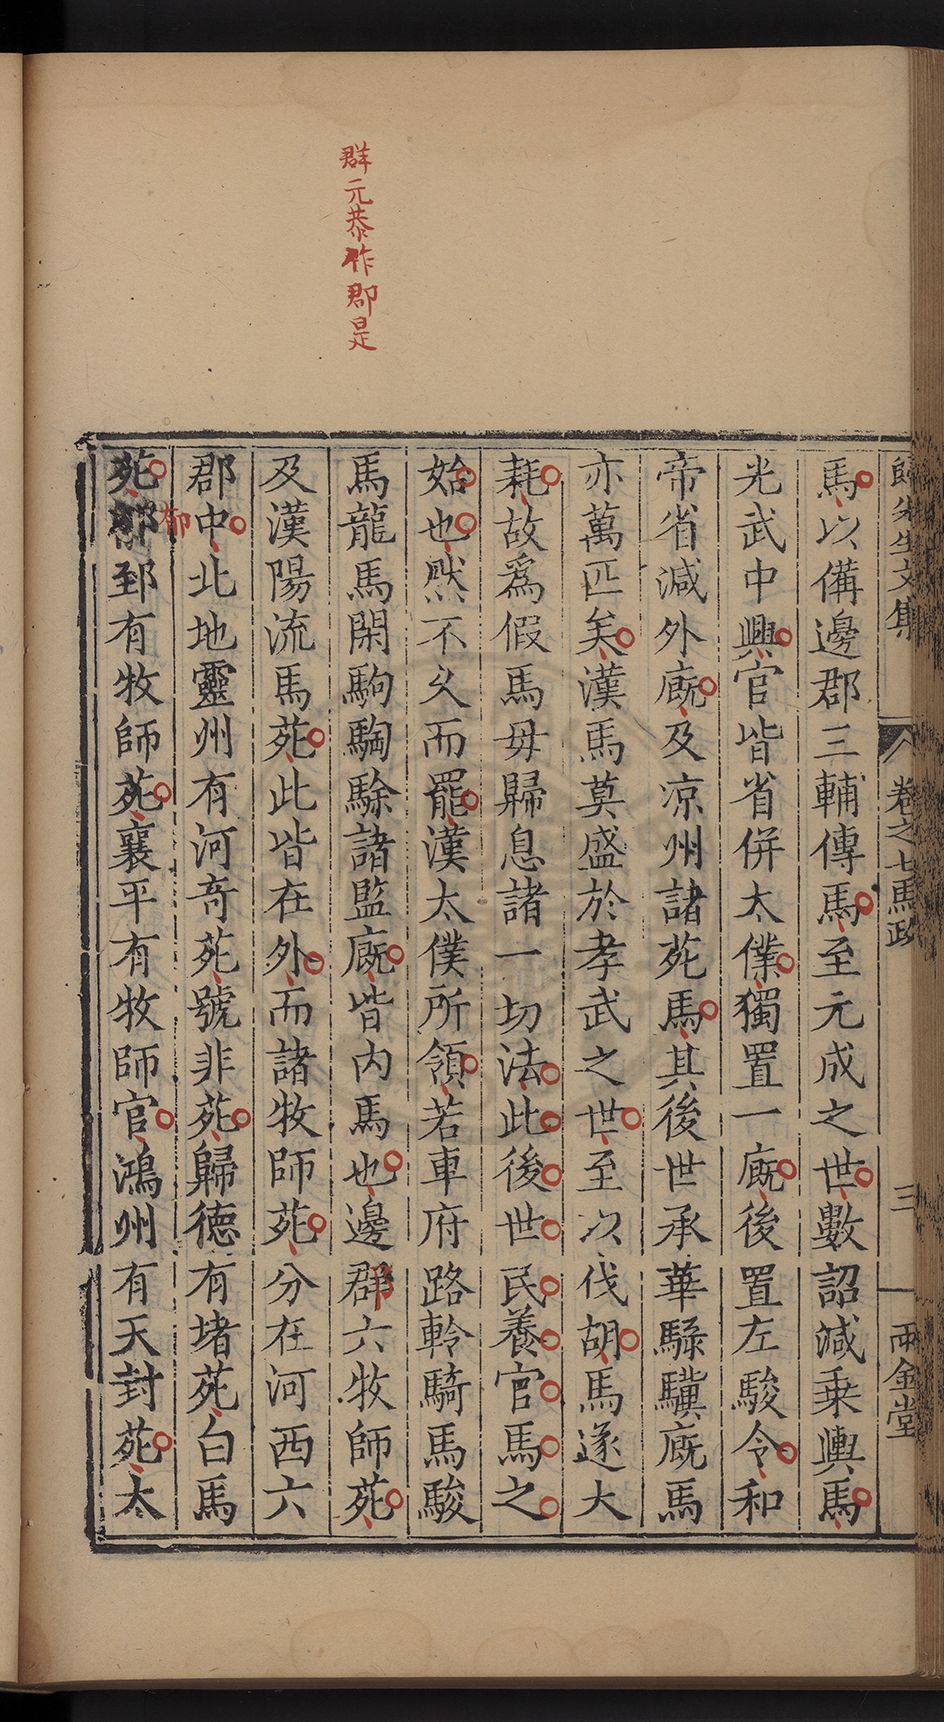 群元恭作郡是
歸先生文集
卷之七馬政
三
兩金堂
馬以備邊郡三輔傳馬至元成之世數詔減乗輿馬
光武中興官皆省併太僕獨置一廐後置左駿令和
帝省減外廐及凉州諸苑馬其後世承華騄驥廐馬
亦萬匹矣漢馬莫盛於孝武之世至以伐胡馬遂大
耗故爲假馬毋歸息諸一切法此後世民養官馬之
始也然不乆而罷漢太僕所領若車府路軨騎馬駿
馬龍馬閑駒騊駼諸監廐皆内馬也邊群六牧師苑
及漢陽流馬苑此皆在外而諸牧師苑分在河西六
郡中北地靈州有河竒苑號非苑歸德有堵苑白馬
苑郁郅有牧師苑襄平有牧師官鴻州有天封苑太
郁